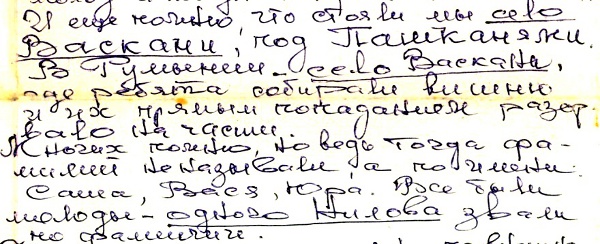 И еще помню, что стояли мы село
Васкани, под Пашканями.
В Румынии – село Васкани,
где ребята собирали вишню
и их прямым попаданием разор
вало на части.
Многих помню, но ведь тогда фа-
милий не называли, а по имени:
Саша, Вася, Юра. Все были
молоды – одного Нилова звали
по фамилии.